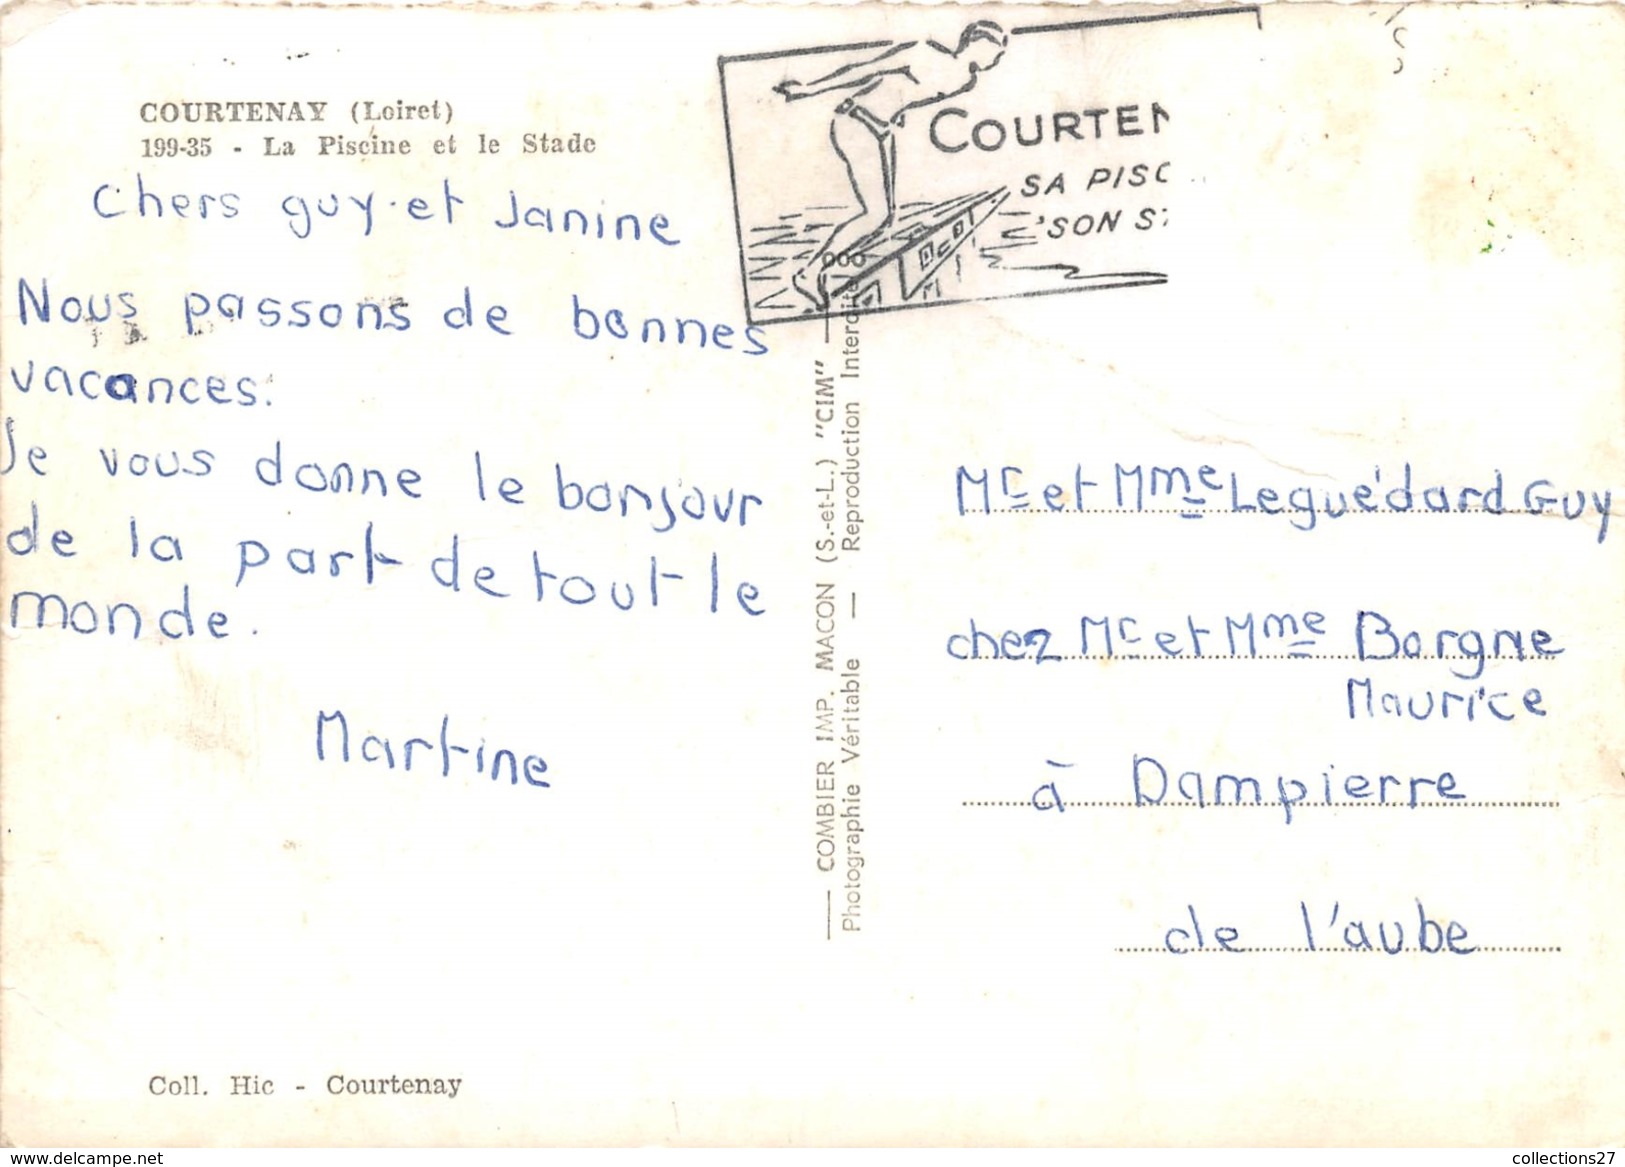 COURTENAY (Loiret)
199-35 - La Piscine et le Stade
Chers guy et Janine
Nous passons de bonnes
vacances.
Je vous donne le bonjour
de la part de tout le
monde.
Martine
Coll. Hic - Courtenay
COMBIER IMP. MACON (S.-et-L.) "CIM"
Photographie Véritable — Reproduction Interdite
COURTEN
SA PISC
SON ST
Mr et Mme Leguédard Guy
chez Mr et Mme Borgne
Maurice
à Dampierre
de l'aube
www.delcampe.net
collections27